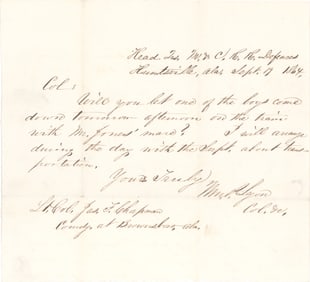 Head Qrs. M. & C. R. R. Defences
Huntsville, Ala, Sept. 17 1864.
Col:
Will you let one of the boys come
down tomorrow afternoon on the train
with Mr. Jones' maid? I will arrange
during the day with the Supt. about trans-
portation.
Yours Truly
Lyon
Col. &c.
Lt. Col. Jas. F. Chapman
Comdg. at Brownsboro, Ala.